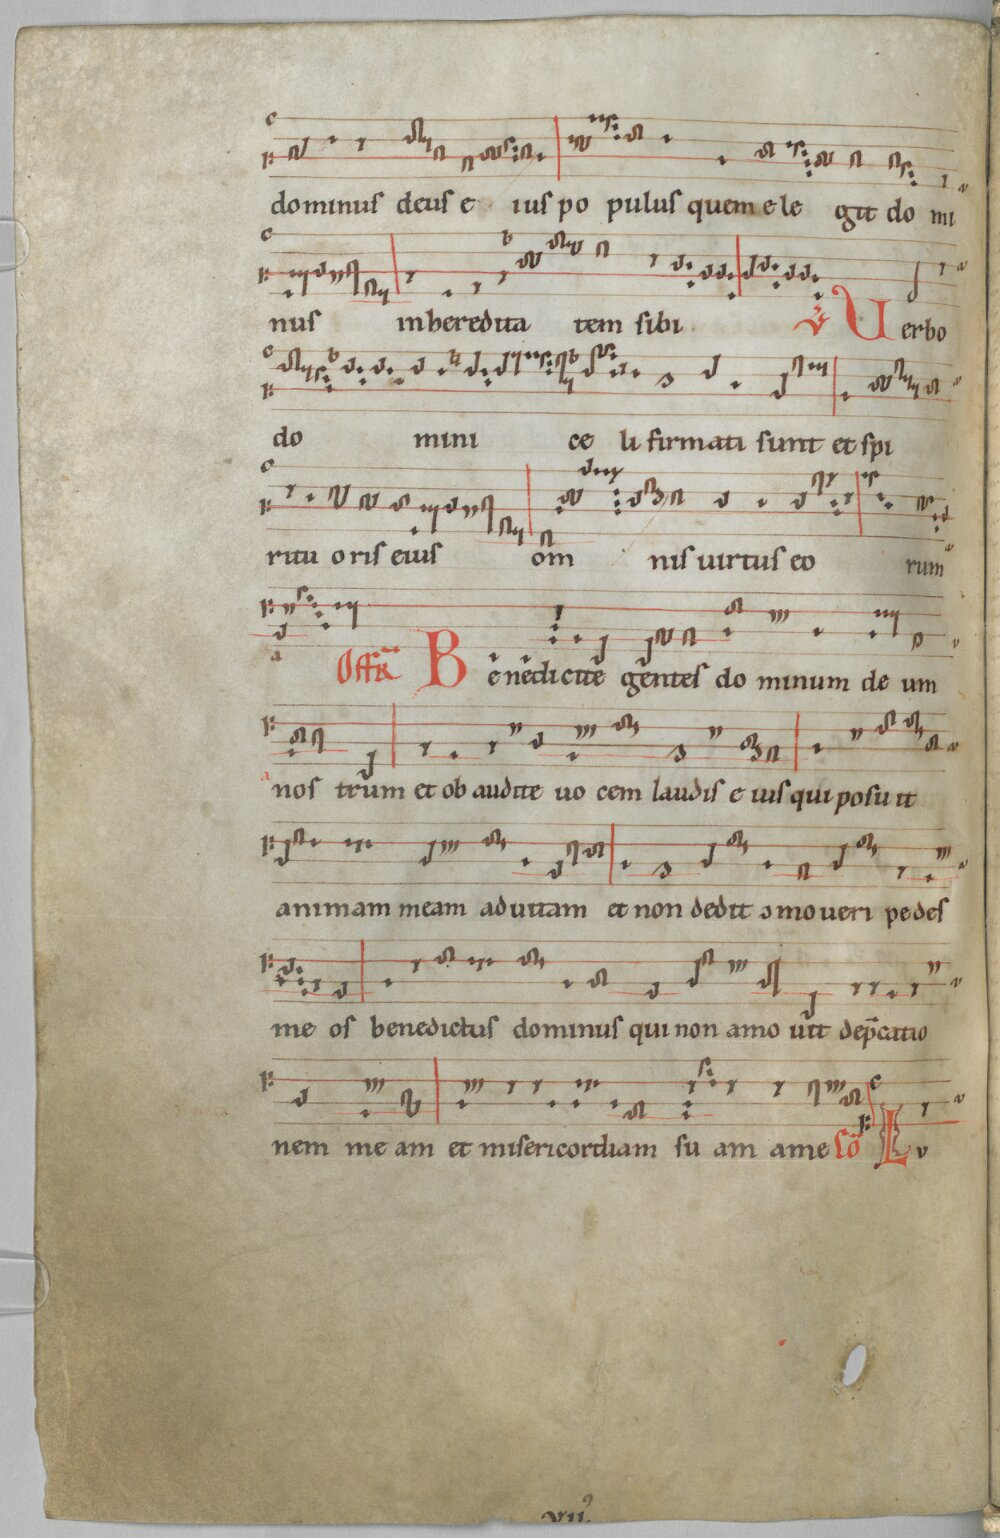 dominus deus e ius po pulus quem e le git do mi
nus in heredita tem sibi. ℣ Uerbo
do mini ce li firmati sunt et spi
ritu oris eius om nis uirtus eo rum
Offr̄ Benedicite gentes do minum de um
nos trum et ob audite uo cem laudis e ius qui posu it
animam meam ad uitam et non dedit cōmoueri pedes
me os benedictus dominus qui non amo uit dep̄catio
nem me am et misericordiam su am a me Cō Lu
xii⁹